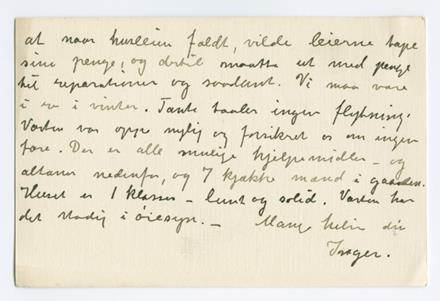 at naar hurleim faldt, vilde leierne tape
sine penge, og dertil maatte ut med penge
til reparationer og saadant. Vi maa være
i ro i vinter. Tante taaler ingen flytning.
Værten var oppe nylig og forsikret os om ingen
fare. Der er alle mulige hjelpemidler – og
altaner nedenfor, og 7 kjække mænd i gaarden.
Huset er 1 klasses – lunt og solid. Værten har
det stadig i øiesyn. – Mange hilsn din
Inger.